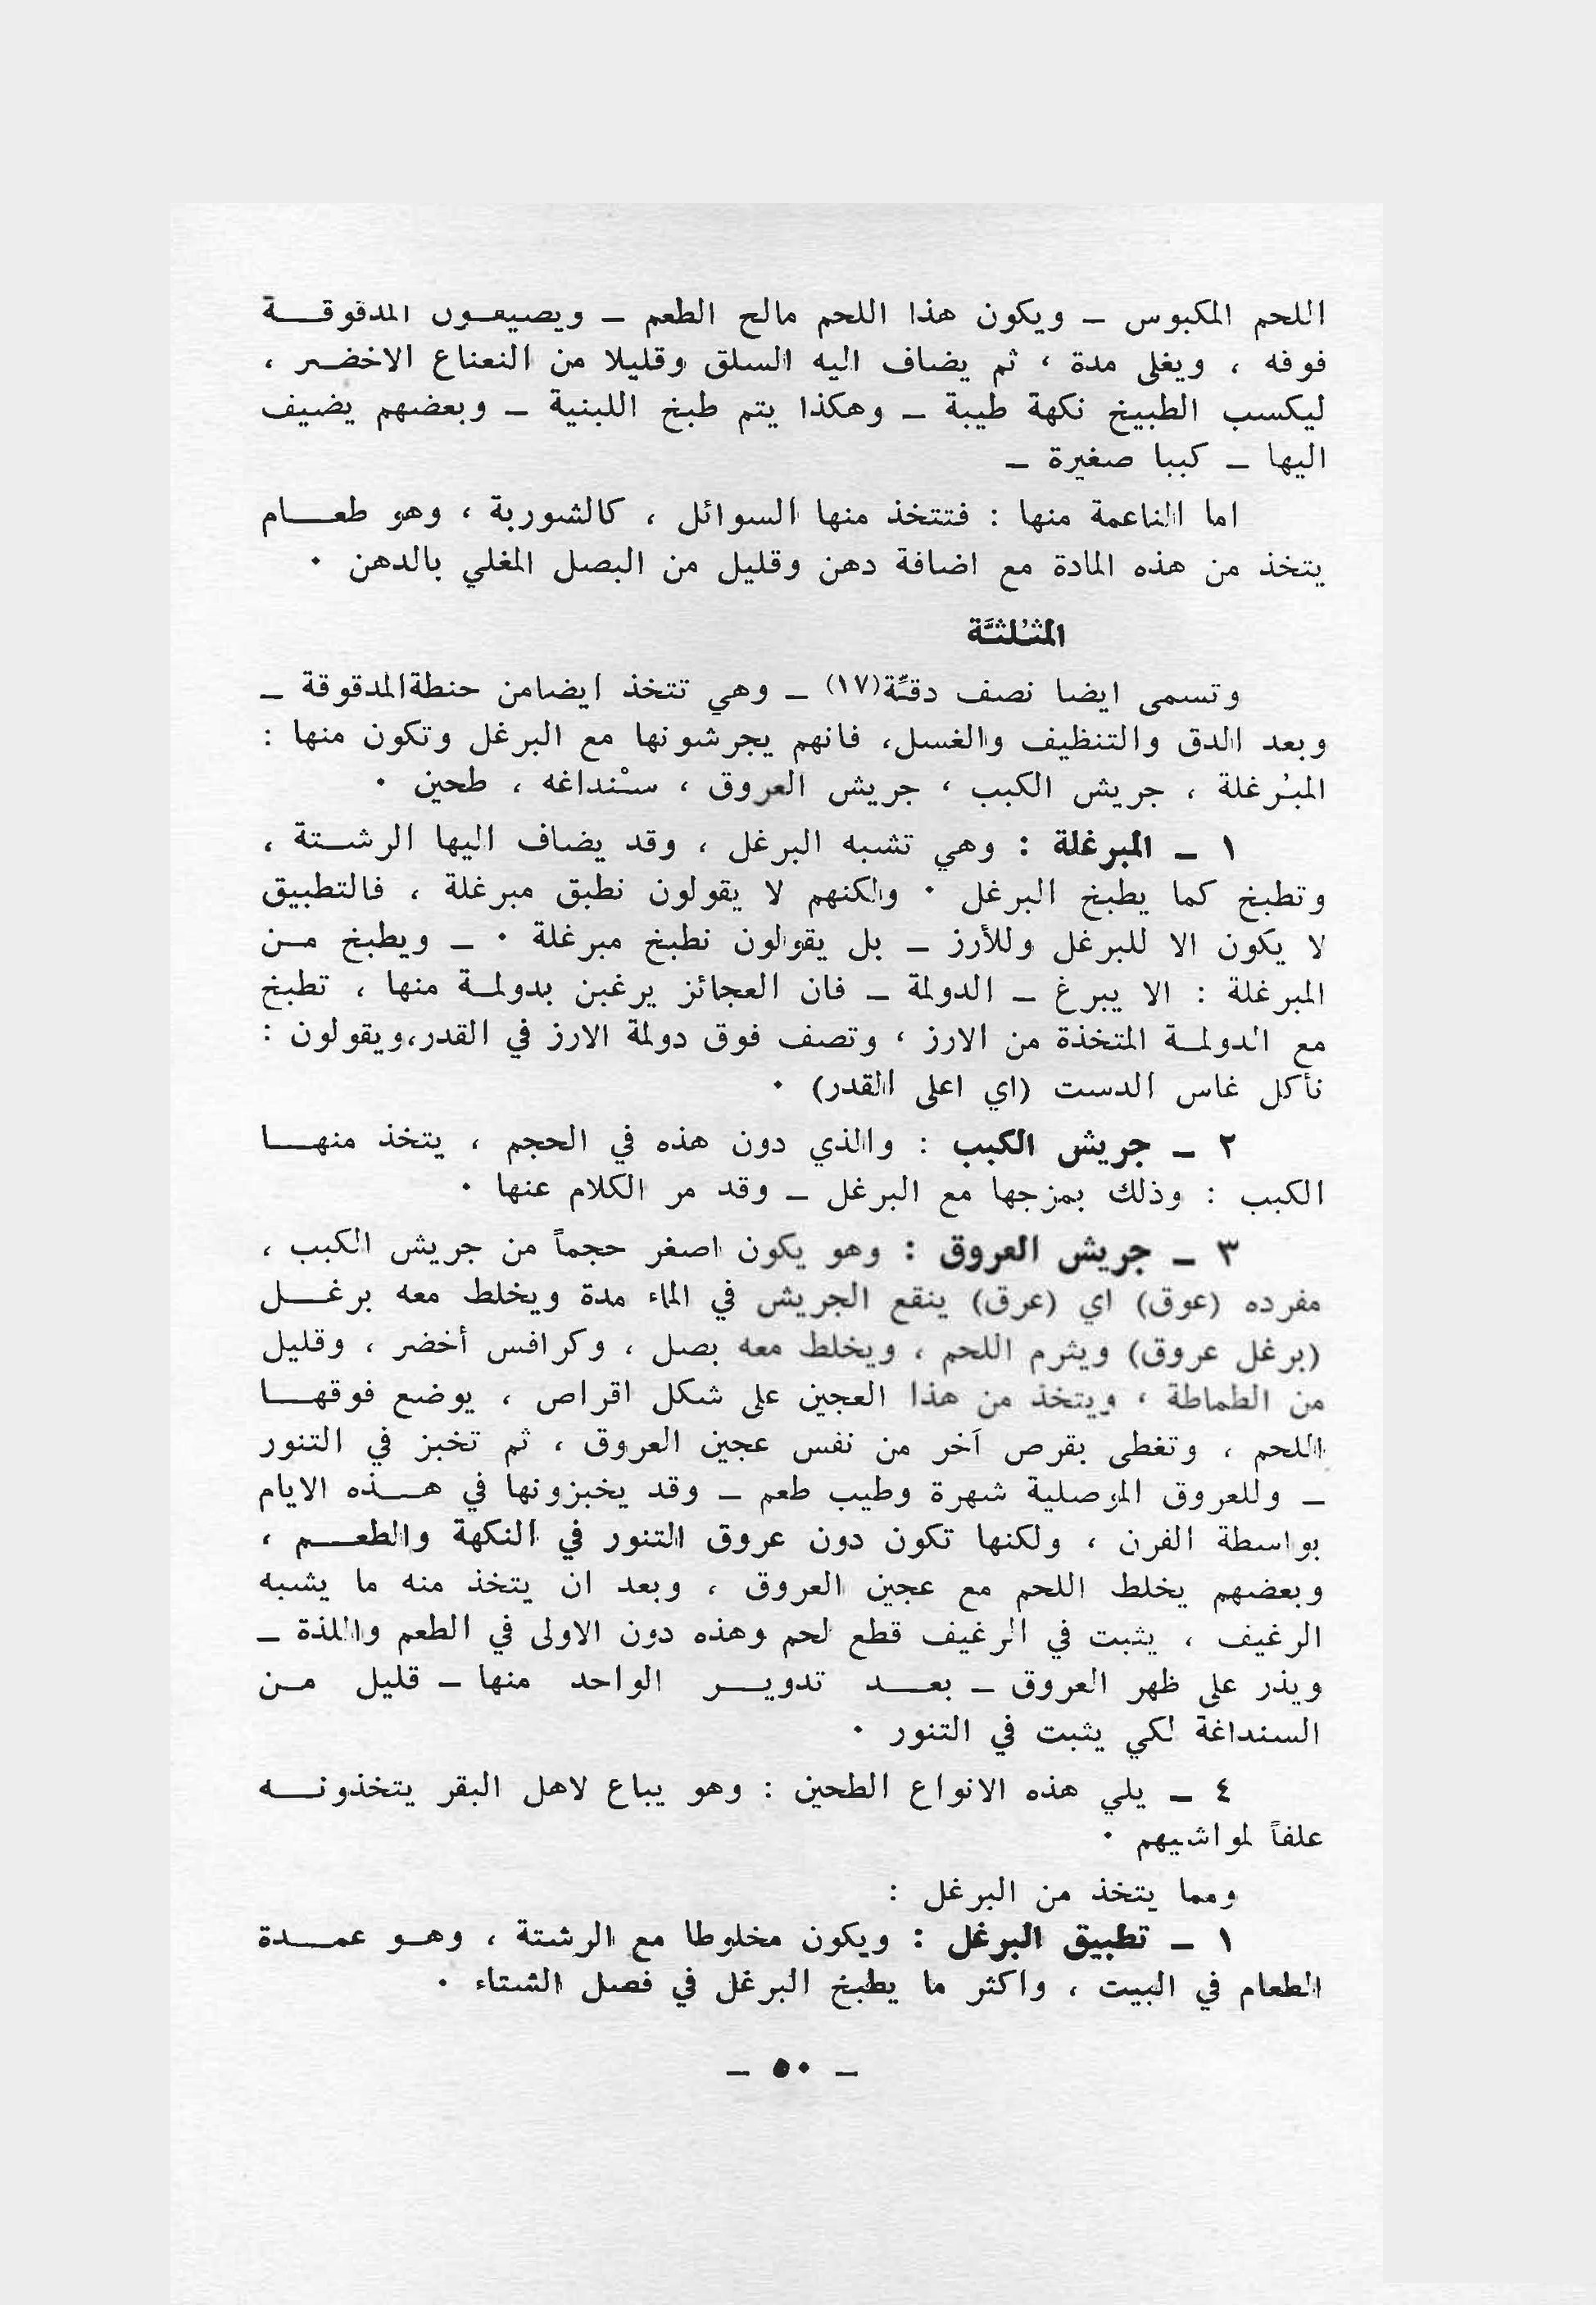 اللحم المكبوس – ويكون هذا اللحم مالح الطعم – ويضيفون المدقوقة
فوقه ، ويغلى مدة ، ثم يضاف اليه السلق وقليلا من النعناع الاخضر ،
ليكسب الطبيخ نكهة طيبة – وهكذا يتم طبخ اللبنية – وبعضهم يضيف
اليها – كببا صغيرة –
اما الناعمة منها : فتتخذ منها السوائل ، كالشوربة ، وهو طعام
يتخذ من هذه المادة مع اضافة دهن وقليل من البصل المغلي بالدهن ٠
المثُلثَّة
وتسمى ايضا نصف دقِّة(١٧) – وهي تتخذ ايضامن حنطةالمدقوقة –
وبعد الدق والتنظيف والغسل، فانهم يجرشونها مع البرغل وتكون منها :
المبُرغلة ، جريش الكبب ، جريش العروق ، سنْداغه ، طحين ٠
١ – المبرغلة : وهي تشبه البرغل ، وقد يضاف اليها الرشتة ،
وتطبخ كما يطبخ البرغل ٠ ولكنهم لا يقولون نطبق مبرغلة ، فالتطبيق
لا يكون الا للبرغل وللأرز – بل يقولون نطبخ مبرغلة ٠ – ويطبخ من
المبرغلة : الا يبرغ – الدولمة – فان العجائز يرغبن بدولمة منها ، تطبخ
مع الدولمة المتخذة من الارز ، وتصف فوق دولمة الارز في القدر،ويقولون :
نأكل غاس الدست (اي اعلى القدر) ٠
٢ – جريش الكبب : والذي دون هذه في الحجم ، يتخذ منها
الكبب : وذلك بمزجها مع البرغل – وقد مر الكلام عنها ٠
٣ – جريش العروق : وهو يكون اصغر حجماً من جريش الكبب ،
مفرده (عوق) اي (عرق) ينقع الجريش في الماء مدة ويخلط معه برغل
(برغل عروق) ويثرم اللحم ، ويخلط معه بصل ، وكرافس أخضر ، وقليل
من الطماطة ، ويتخذ من هذا العجين على شكل اقراص ، يوضع فوقها
اللحم ، وتغطى بقرص آخر من نفس عجين العروق ، ثم تخبز في التنور
– وللعروق الموصلية شهرة وطيب طعم – وقد يخبزونها في هذه الايام
بواسطة الفرن ، ولكنها تكون دون عروق التنور في النكهة والطعم ،
وبعضهم يخلط اللحم مع عجين العروق ، وبعد ان يتخذ منه ما يشبه
الرغيف ، يثبت في الرغيف قطع لحم وهذه دون الاولى في الطعم واللذة –
ويذر على ظهر العروق – بعد تدوير الواحد منها – قليل من
السنداغة لكي يثبت في التنور ٠
٤ – يلي هذه الانواع الطحين : وهو يباع لاهل البقر يتخذونه
علفاً لمواشيهم ٠
ومما يتخذ من البرغل :
١ – تطبيق البرغل : ويكون مخلوطا مع الرشتة ، وهو عمدة
الطعام في البيت ، واكثر ما يطبخ البرغل في فصل الشتاء ٠
– ٥٠ –